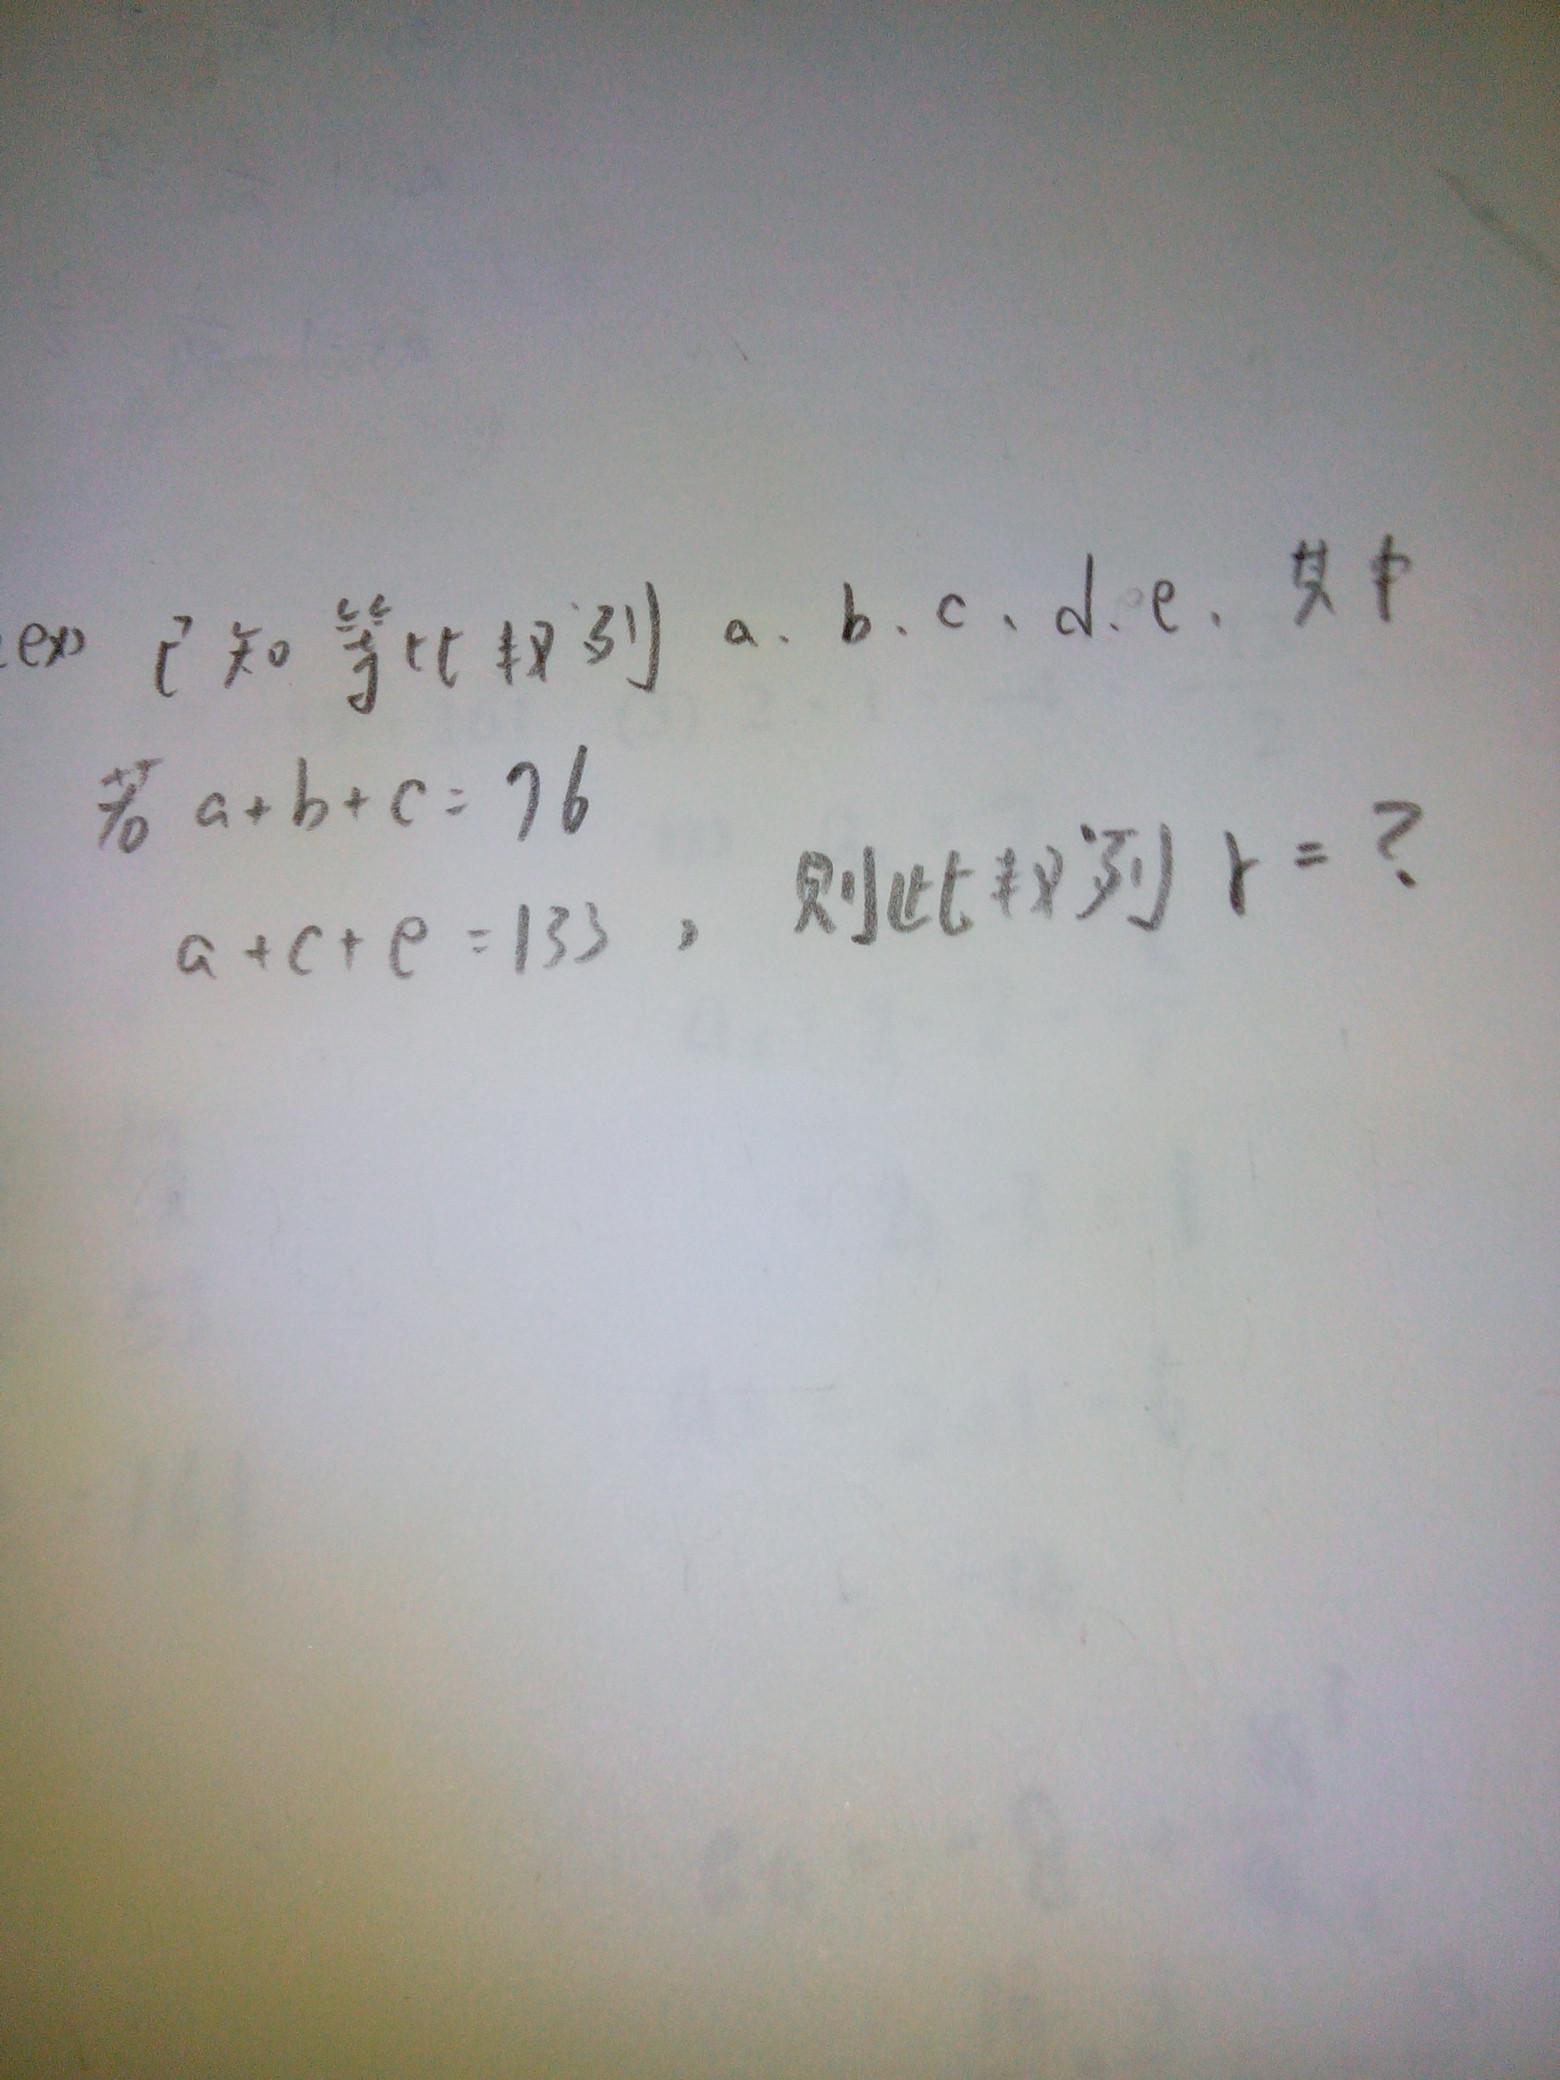 ex) 已知等比数列 a、b、c、d、e、其中
若 a+b+c=76
a+c+e=133, 则此数列 r=?